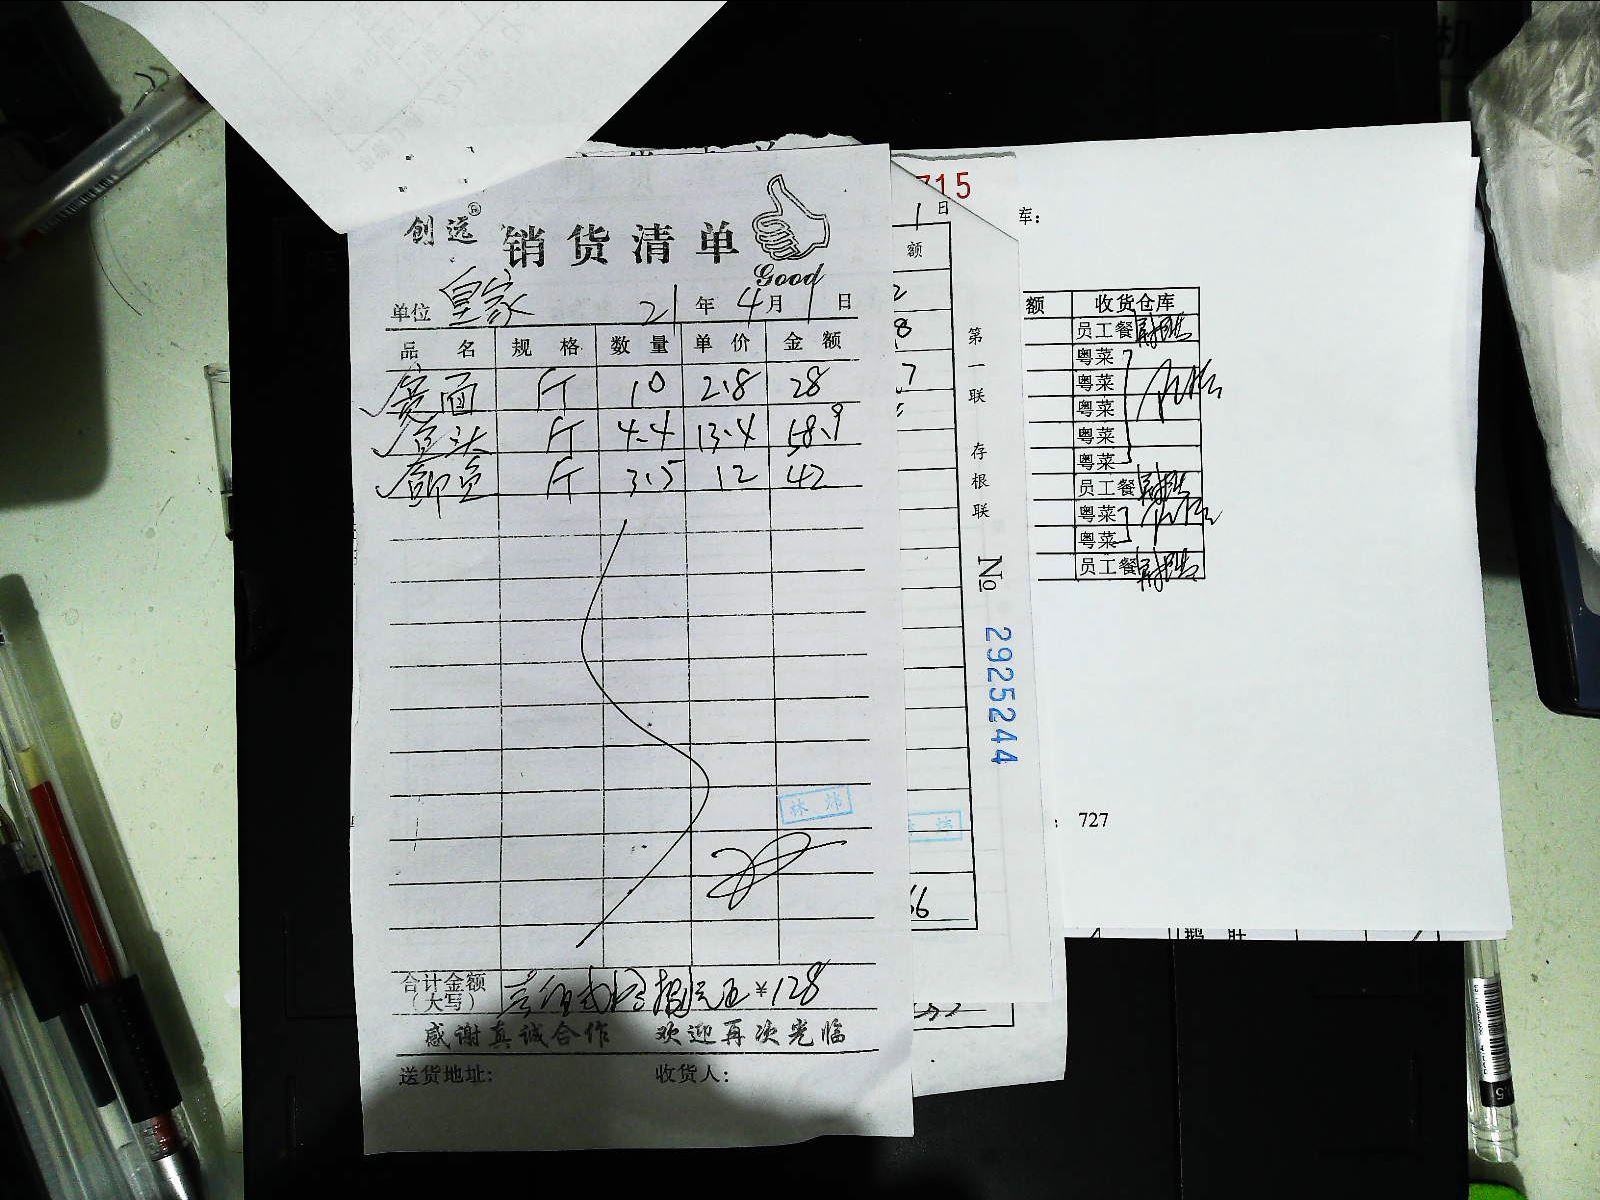 创远®
销货清单
Good
单位 皇家 21年4月1日
品名 规格 数量 单价 金额
宽面 斤 10 2.8 28
斤 4.4 13.4 58.9
斤 3.5 12 42
林炜
合计金额
(大写) ¥128
感谢真诚合作 欢迎再次光临
送货地址: 收货人:
715
1日
额
2
8
7
66
第一联 存根联
№ 2925244
车:
额 收货仓库
员工餐
粤菜
粤菜
粤菜
粤菜
粤菜
员工餐
粤菜
粤菜
员工餐
: 727